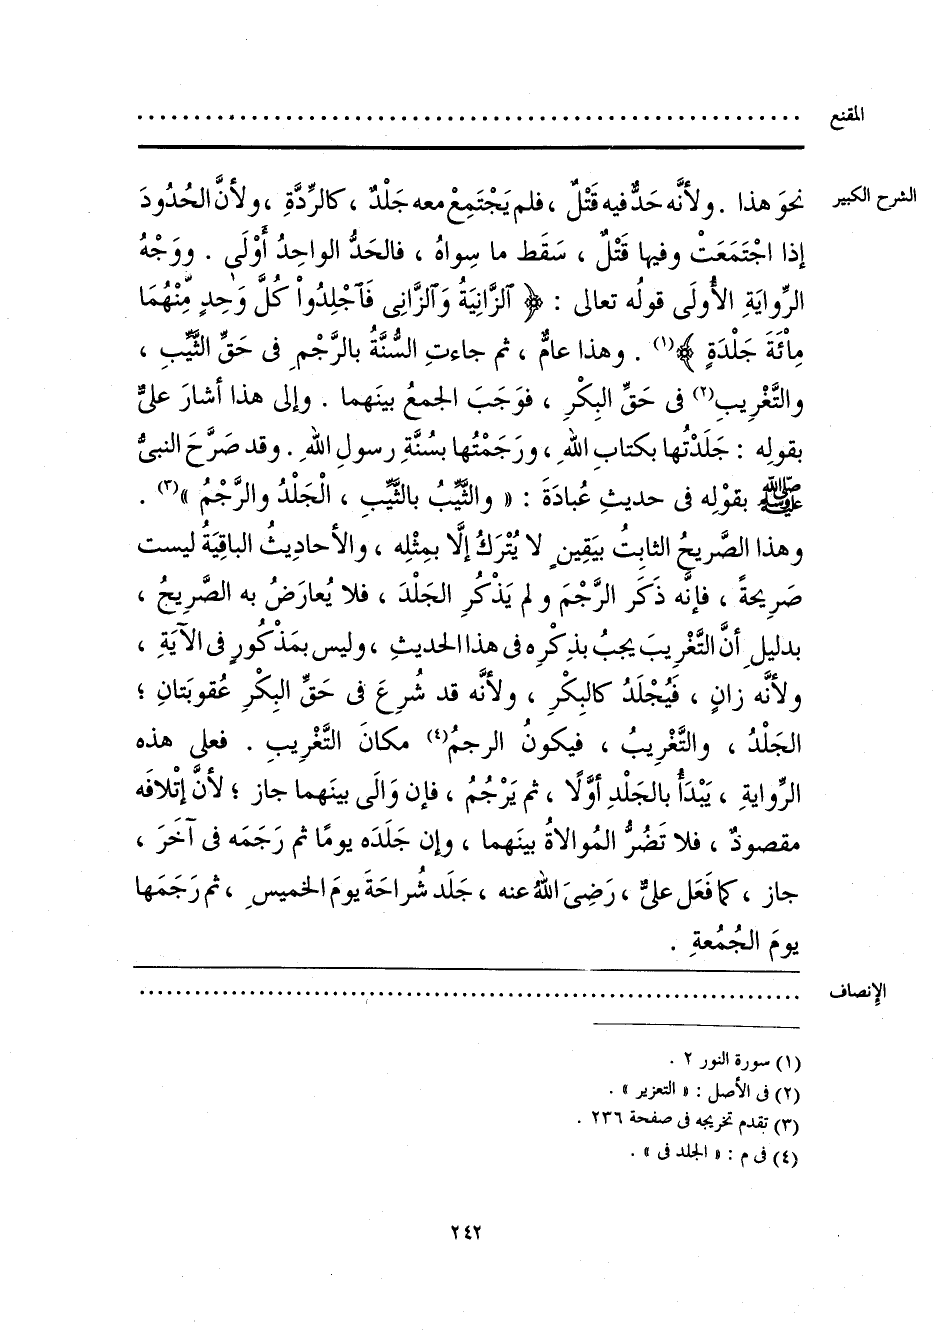 المقنع ............................................................
الشرح الكبير نحوَ هذا . ولأنَّه حَدٌّ فيه قَتْلٌ ، فلم يَجْتَمِعْ معه جَلْدٌ ، كالرِّدَّةِ ، ولأنَّ الحُدُودَ
إذا اجْتَمَعَتْ وفيها قَتْلٌ ، سَقَط ما سِواهُ ، فالحَدُّ الواحِدُ أَوْلَى . ووَجْهُ
الرِّوايَةِ الأُولَى قولُه تعالى : ﴿ ٱلزَّانِيَةُ وَٱلزَّانِى فَٱجْلِدُواْ كُلَّ وَٰحِدٍ مِّنْهُمَا
مِاْئَةَ جَلْدَةٍ ﴾(١) . وهذا عامٌّ ، ثم جاءتِ السُّنَّةُ بالرَّجْمِ فى حَقِّ الثَّيِّبِ ،
والتَّغْرِيبِ(٢) فى حَقِّ البِكْرِ ، فوَجَبَ الجمعُ بينَهما . وإلى هذا أشارَ علىٌّ
بقولِه : جَلَدْتُها بكتابِ اللهِ ، ورَجَمْتُها بسُنَّةِ رسولِ اللهِ . وقد صَرَّحَ النبىُّ
ﷺ بقوْلِه فى حديثِ عُبادَةَ : « والثَّيِّبُ بالثَّيِّبِ ، الْجَلْدُ والرَّجْمُ »(٣) .
وهذا الصَّريحُ الثابتُ بيَقِينٍ لا يُتْرَكُ إلَّا بمِثْلِه ، والأحادِيثُ الباقِيَةُ ليست
صَرِيحةً ، فإنَّه ذَكَر الرَّجْمَ ولم يَذْكُرِ الجَلْدَ ، فلا يُعارَضُ به الصَّرِيحُ ،
بدليلِ أنَّ التَّغْرِيبَ يجبُ بذِكْرِه فى هذا الحديثِ ، وليس بمَذْكُورٍ فى الآيَةِ ،
ولأنَّه زانٍ ، فَيُجْلَدُ كالبِكْرِ ، ولأنَّه قد شُرِعَ فى حَقِّ البِكْرِ عُقوبَتانِ ؛
الجَلْدُ ، والتَّغْرِيبُ ، فيكونُ الرجمُ(٤) مكانَ التَّغْرِيبِ . فعلى هذه
الرِّوايةِ ، يَبْدَأُ بالجَلْدِ أوَّلًا ، ثم يَرْجُمُ ، فإن وَالَى بينَهما جاز ؛ لأنَّ إتْلافَه
مقصودٌ ، فلا تَضُرُّ المُوالاةُ بينَهما ، وإن جَلَدَه يومًا ثم رَجَمَه فى آخَرَ ،
جاز ، كما فَعَل علىٌّ ، رَضِىَ اللهُ عنه ، جَلَد شُراحَةَ يومَ الخميسِ ، ثم رَجَمَها
يومَ الجُمُعةِ .
الإنصاف ............................................................
(١) سورة النور ٢ .
(٢) فى الأصل : « التعزير » .
(٣) تقدم تخريجه فى صفحة ٢٣٦ .
(٤) فى م : « الجلد فى » .
٢٤٢